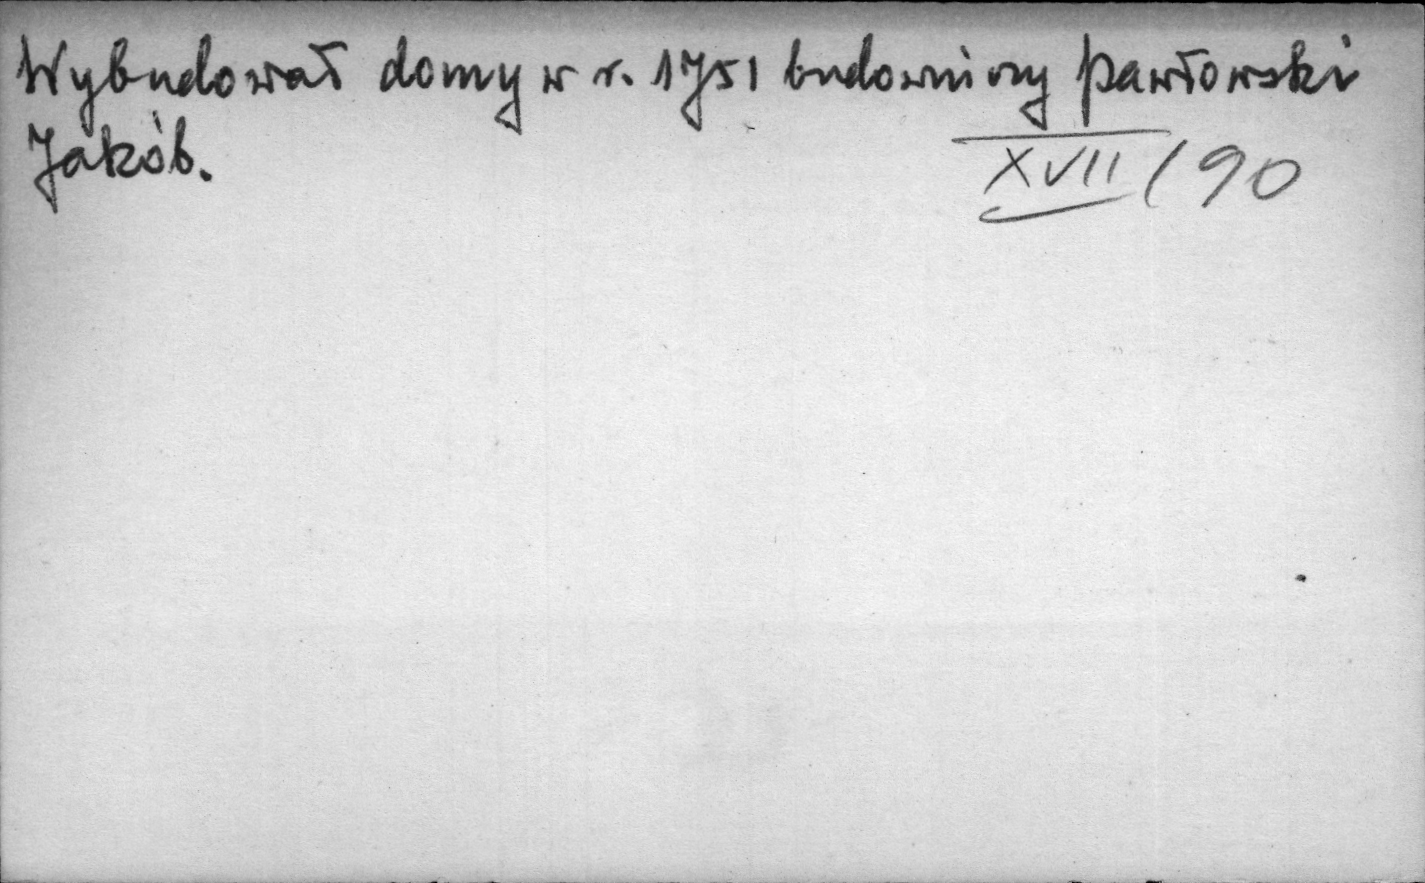 Wybudował domy w r. 1751 budowniczy Pawłowski
Jakób.
XVII/90